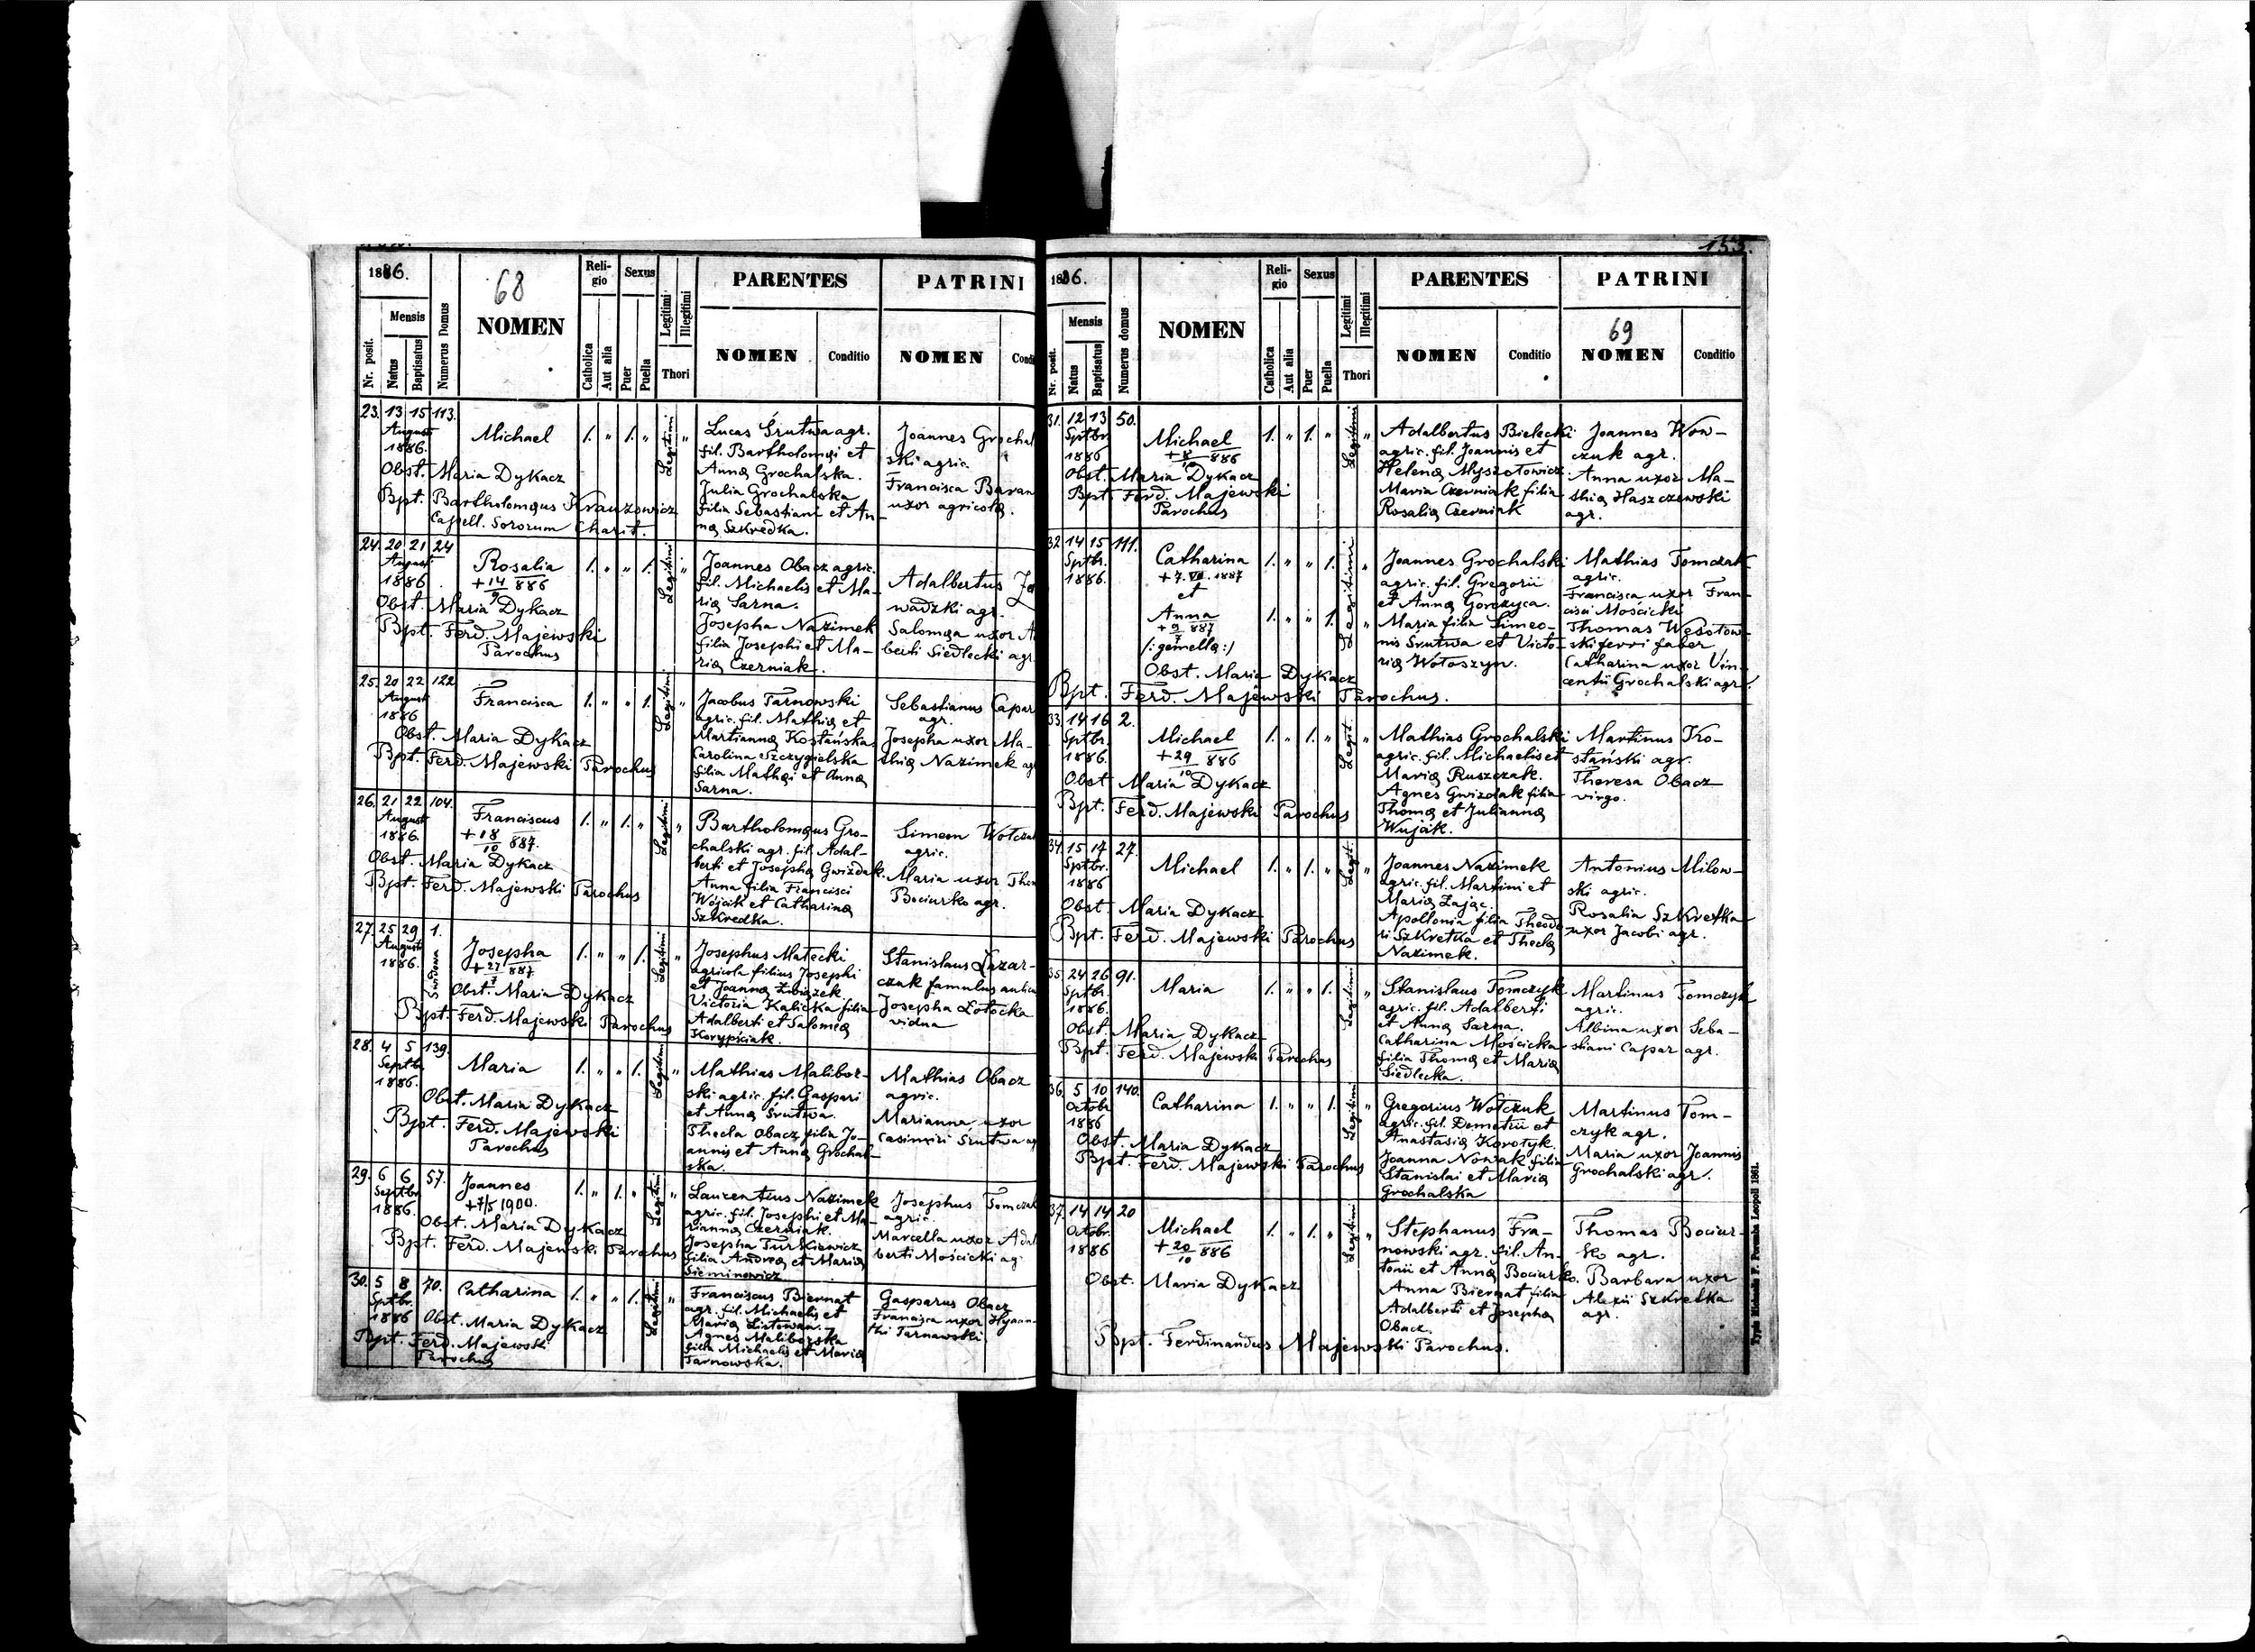 1886.
68
Nr. posit.
Mensis
Natus
Baptisatus
Numerus Domus
NOMEN
Religio
Catholica
Aut alia
Sexus
Puer
Puella
Legitimi
Illegitimi
Thori
PARENTES
NOMEN
Conditio
PATRINI
NOMEN
23. 13 15 113.
August
1886.
Michael
1. " 1. "
Legitimi "
Obst. Maria Dykacz
Bpt. Bartholomęus Krauzowicz
Capell. Sororum Charit.
Lucas Śrutwa agr.
fil. Bartholomęi et
Annę Grochalska.
Julia Grochalska
filia Sebastiani et An-
nę Szkredka.
Joannes Grochal
ski agric.
Francisca Baran
uxor agricolę.
24. 20 21 24
August
1886
Rosalia
+ 14/9 886
1. " " 1.
Legitimi "
Obst. Maria Dykacz
Bpt. Ferd. Majewski
Parochus
Joannes Obacz agric.
fil. Michaelis et Ma-
rię Sarna.
Josepha Nazimek
filia Josephi et Ma-
rię Czerniak.
Adalbertus
wadzki agr.
Salomęa uxor
berti Siedlecki agr.
25. 20 22 122
August
1886
Francisca
1. " " 1.
Legitimi "
Obst. Maria Dykacz
Bpt. Ferd. Majewski Parochus
Jacobus Tarnowski
agric. fil. Mathię et
Martiannę Kostańska
Carolina Szczygielska
filia Mathęi et Annę
Sarna.
Sebastianus Capar
agr.
Josepha uxor Ma-
thię Nazimek ag
26. 21 22 104.
August
1886.
Franciscus
+ 18/10 887.
1. " 1. "
Legitimi "
Obst. Maria Dykacz
Bpt. Ferd. Majewski Parochus
Bartholomęus Gro-
chalski agr. fil. Adal-
berti et Josephę Gwizdak.
Anna filia Francisci
Wójcik et Catharinę
Szkredka.
Simeon Wołcza
agric.
Maria uxor Thom
Bociurko agr.
27. 25 29 1.
August
1886.
Josepha
+ 27/7 887
1. " " 1.
Legitimi "
Obst. Maria Dykacz
Bpt. Ferd. Majewski Parochus
Josephus Małecki
agricola filius Josephi
et Joannę Związek
Victoria Kalicka filia
Adalberti et Salomeę
Korypściak.
Stanislaus Łazar-
czuk famulus
Josepha Łotocka
vidua
28. 4 5 139.
Septb.
1886.
Maria
1. " " 1.
Legitimi "
Obst. Maria Dykacz
Bpt. Ferd. Majewski
Parochus
Mathias Malibor-
ski agric. fil. Gaspari
et Annę Śrutwa.
Thecla Obacz filia Jo-
annis et Annę Grochal-
ska.
Mathias Obacz
agric.
Marianna uxor
Casimiri Srutwa ag
29. 6 6 57.
Septbr.
1886.
Joannes
+ 7/5 1900.
1. " 1. "
Legitimi "
Obst. Maria Dykacz
Bpt. Ferd. Majewski Parochus
Laurentius Nazimek
agric. fil. Josephi et Ma-
riannę Czerniak.
Josepha Turkiewicz
filia Andreę et Marię
Sieminowicz
Josephus Tomcza
agric.
Marcella uxor Adal
berti Mościcki ag
30. 5 8 70.
Sptbr.
1886
Catharina
1. " " 1.
Legitimi "
Obst. Maria Dykacz
Bpt. Ferd. Majewski
Parochus
Franciscus Biernat
agr. fil. Michaelis et
Marię Listowan.
Agnes Maliborska
filia Michaelis et Marię
Tarnowska.
Gasparus Obacz
Francisca uxor Hyaan-
thi Tarnawski.
155.
1886.
Nr. posit.
Mensis
Natus
Baptisatus
Numerus domus
NOMEN
Religio
Catholica
Aut alia
Sexus
Puer
Puella
Legitimi
Illegitimi
Thori
PARENTES
NOMEN
Conditio
PATRINI
69
NOMEN
Conditio
31. 12 13 50.
Sptbr.
1886
Michael
+ 8/10 886
1. " 1. "
Legitimi "
Obst. Maria Dykacz
Bpt. Ferd. Majewski
Parochus
Adalbertus Bielecki
agric. fil. Joannis et
Helenę Myszotowicz.
Maria Czerniak filia
Rosalię Czerniak
Joannes Wow-
czuk agr.
Anna uxor Ma-
thię Haszczewski
agr.
32. 14 15 111.
Sptbr.
1886.
Catharina
+ 7. VII. 1887
et
Anna
+ 9/7 887
(: gemellę :)
1. " " 1.
1. " " 1.
Legitimi "
Obst. Maria Dykacz
Bpt. Ferd. Majewski Parochus.
Joannes Grochalski
agric. fil. Gregorii
et Annę Gorczyca.
Maria filia Simeo-
nis Srutwa et Victo-
rię Wołoszyn.
Mathias Tomczak
agric.
Francisca uxor Fran-
cisci Mościcki
Thomas Wesołow-
ski ferri faber
Catharina uxor Vin-
centii Grochalski agr.
33. 14 16 2.
Sptbr.
1886.
Michael
+ 29/10 886
1. " 1. "
Legit. "
Obst. Maria Dykacz
Bpt. Ferd. Majewski Parochus
Mathias Grochalski
agric. fil. Michaelis et
Marię Ruszczak.
Agnes Gwizdak filia
Thomę et Juliannę
Wujak.
Martinus Ko-
stański agr.
Theresa Obacz
virgo.
34. 15 17 27.
Sptbr.
1886
Michael
1. " 1. "
Legit. "
Obst. Maria Dykacz
Bpt. Ferd. Majewski Parochus
Joannes Nazimek
agric. fil. Martini et
Marię Zając.
Apollonia filia Theodo
ri Szkretka et Theclę
Nazimek.
Antonius Milow-
ski agric.
Rosalia Szkretka
uxor Jacobi agr.
35. 24 26 91.
Sptbr.
1886.
Maria
1. " " 1.
Legitimi "
Obst. Maria Dykacz
Bpt. Ferd. Majewski Parochus
Stanislaus Tomczyk
agric. fil. Adalberti
et Annę Sarna.
Catharina Mościcka
filia Thomę et Marię
Siedlecka.
Martinus Tomczyk
agric.
Albina uxor Seba-
stiani Capar agr.
36. 5 10 140.
Octobr
1886
Catharina
1. " " 1.
Legitimi "
Obst. Maria Dykacz
Bpt. Ferd. Majewski Parochus
Gregorius Wołczuk
agric. fil. Demetrii et
Anastasię Korotyk.
Joanna Nowak filia
Stanislai et Marię
Grochalska
Martinus Tom-
czyk agr.
Maria uxor Joannis
Grochalski agr.
37. 14 14 20
Octobr.
1886
Michael
+ 20/10 886
1. " 1. "
Legitimi "
Obst. Maria Dykacz
Bpt. Ferdinandus Majewski Parochus.
Stephanus Fra-
nowski agr. fil. An-
tonii et Annę Bociurko.
Anna Biernat filia
Adalberti et Josephę
Obacz.
Thomas Bociur-
ko agr.
Barbara uxor
Alexii Szkretka
agr.